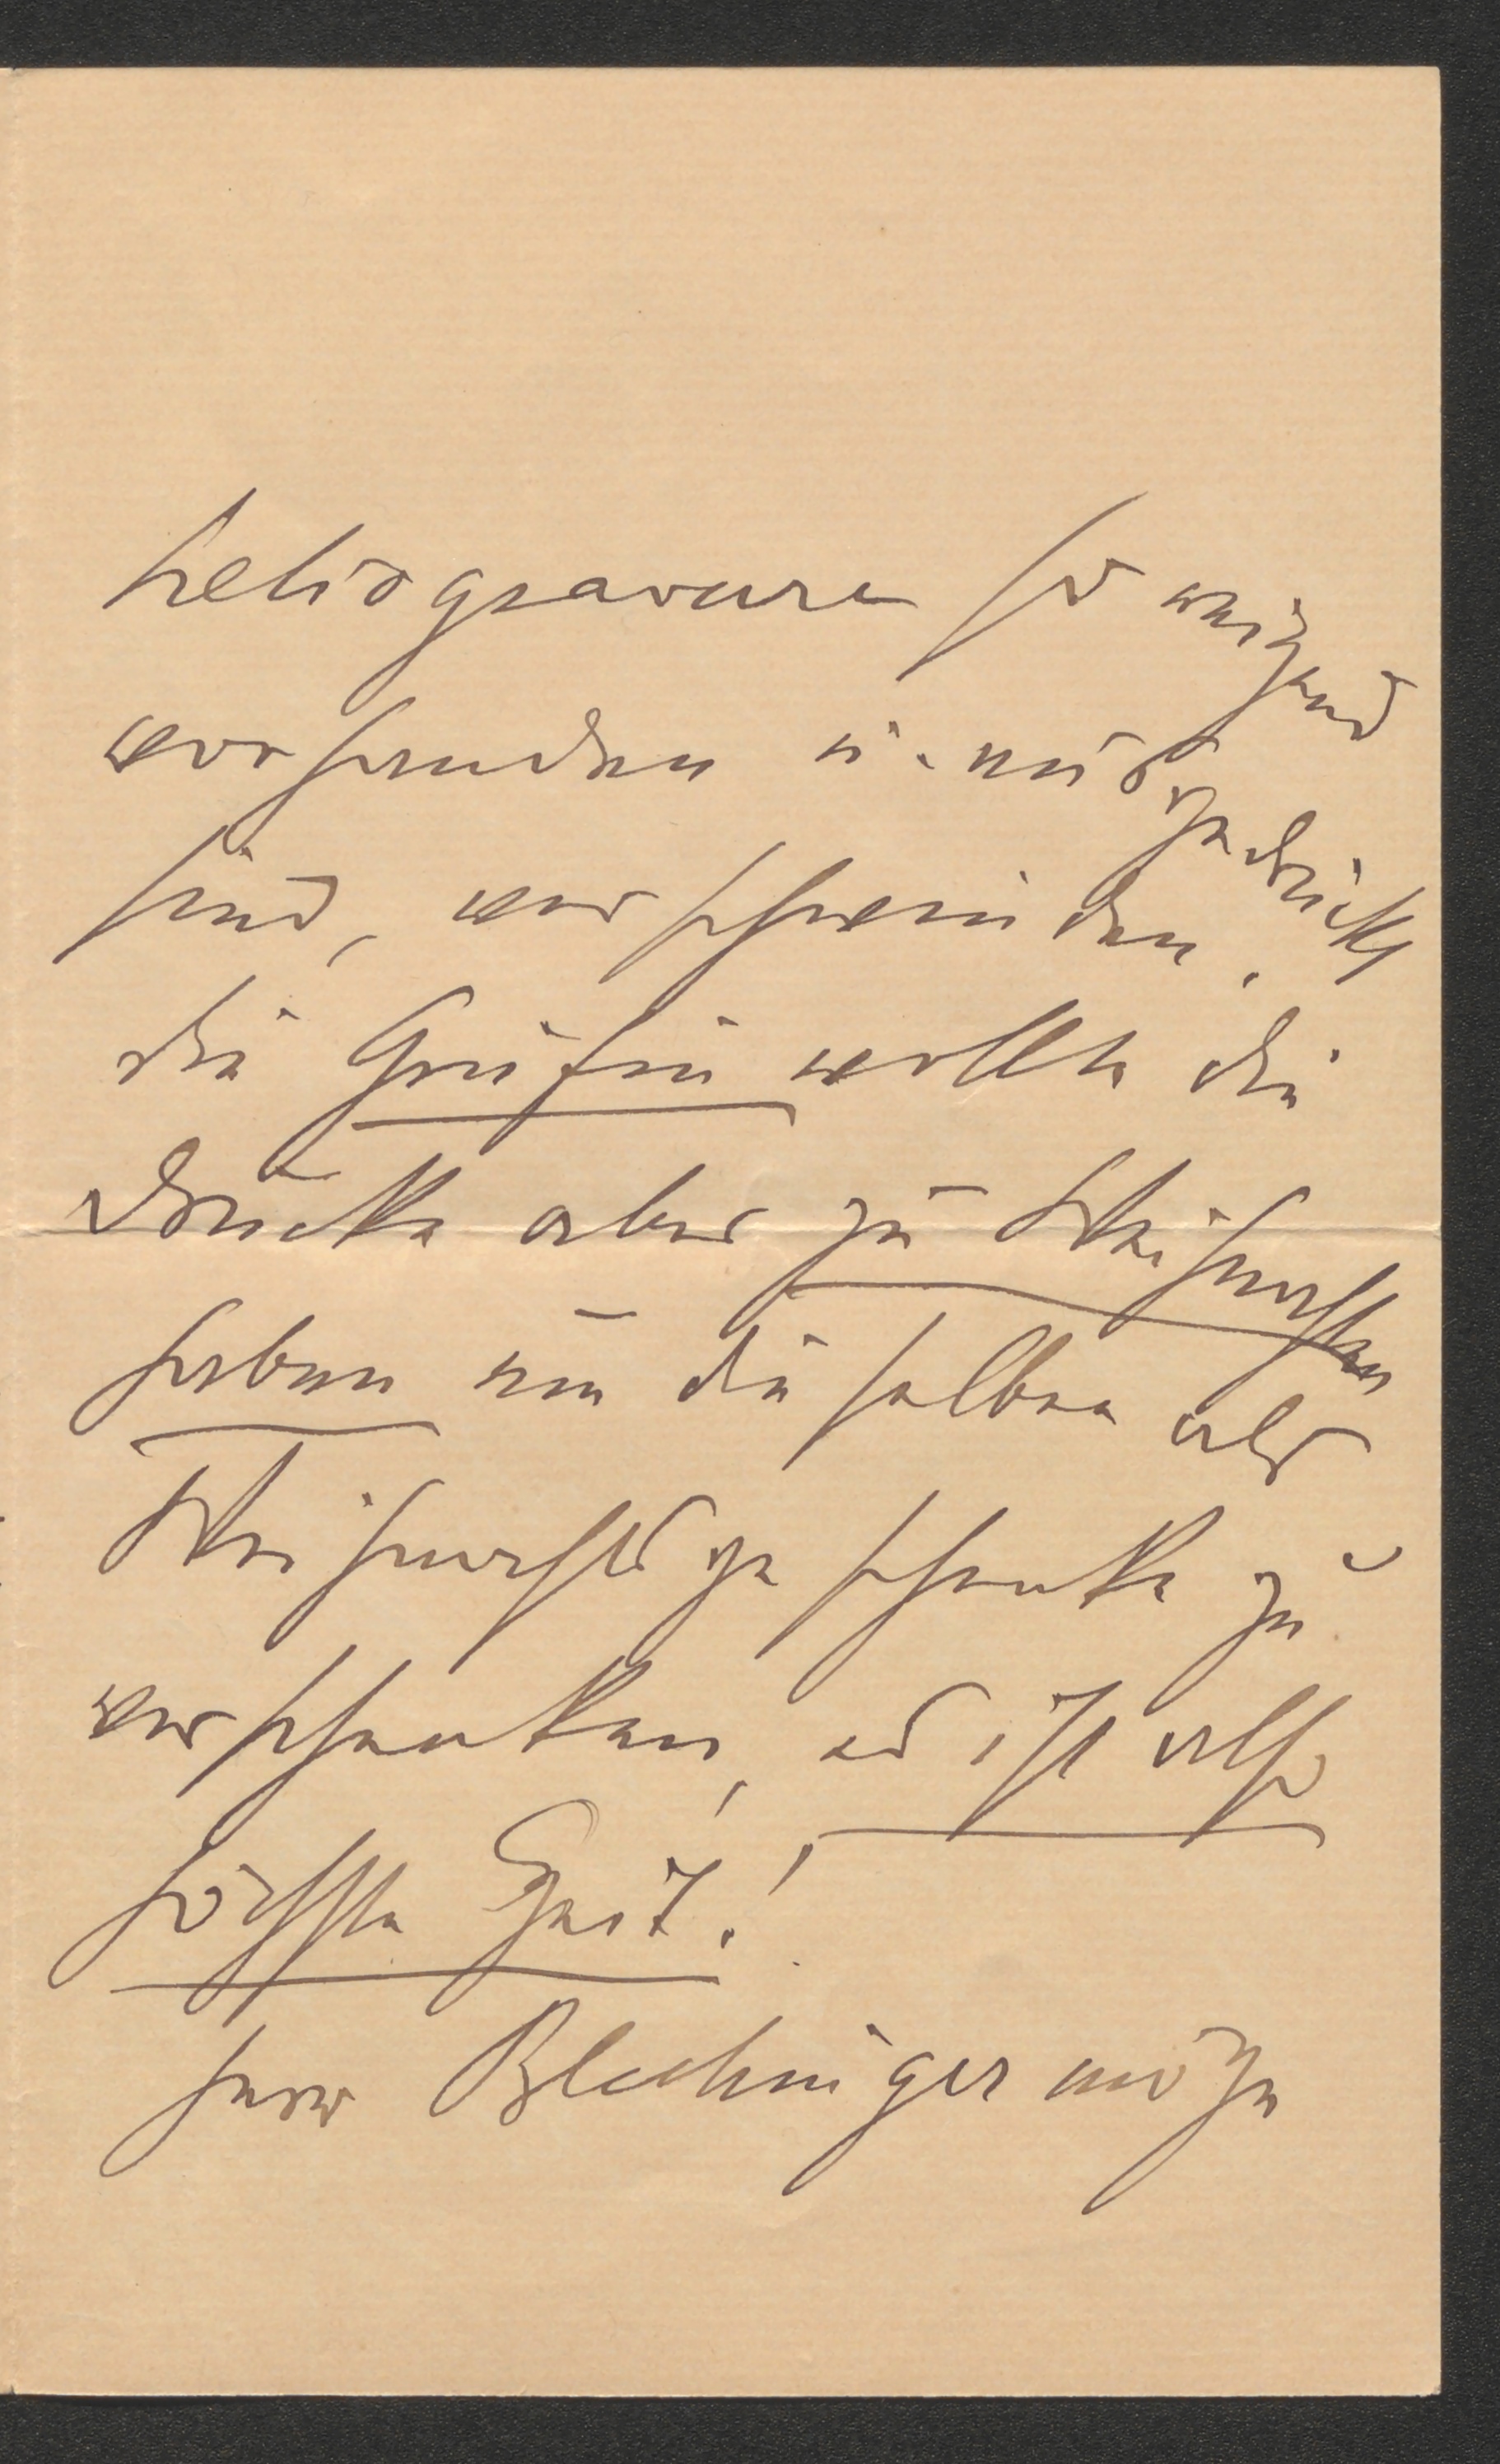 heliogravure so reizend
vorhanden u. ausgedrückt
sind, verschwinden.
die Gräfin wollte die
Drucke aber zu Weihnachten
haben um dieselben als
Weihnachtsgeschenke zu
verschenken, es ist also
höchste Zeit!
Herr Blechinger möge